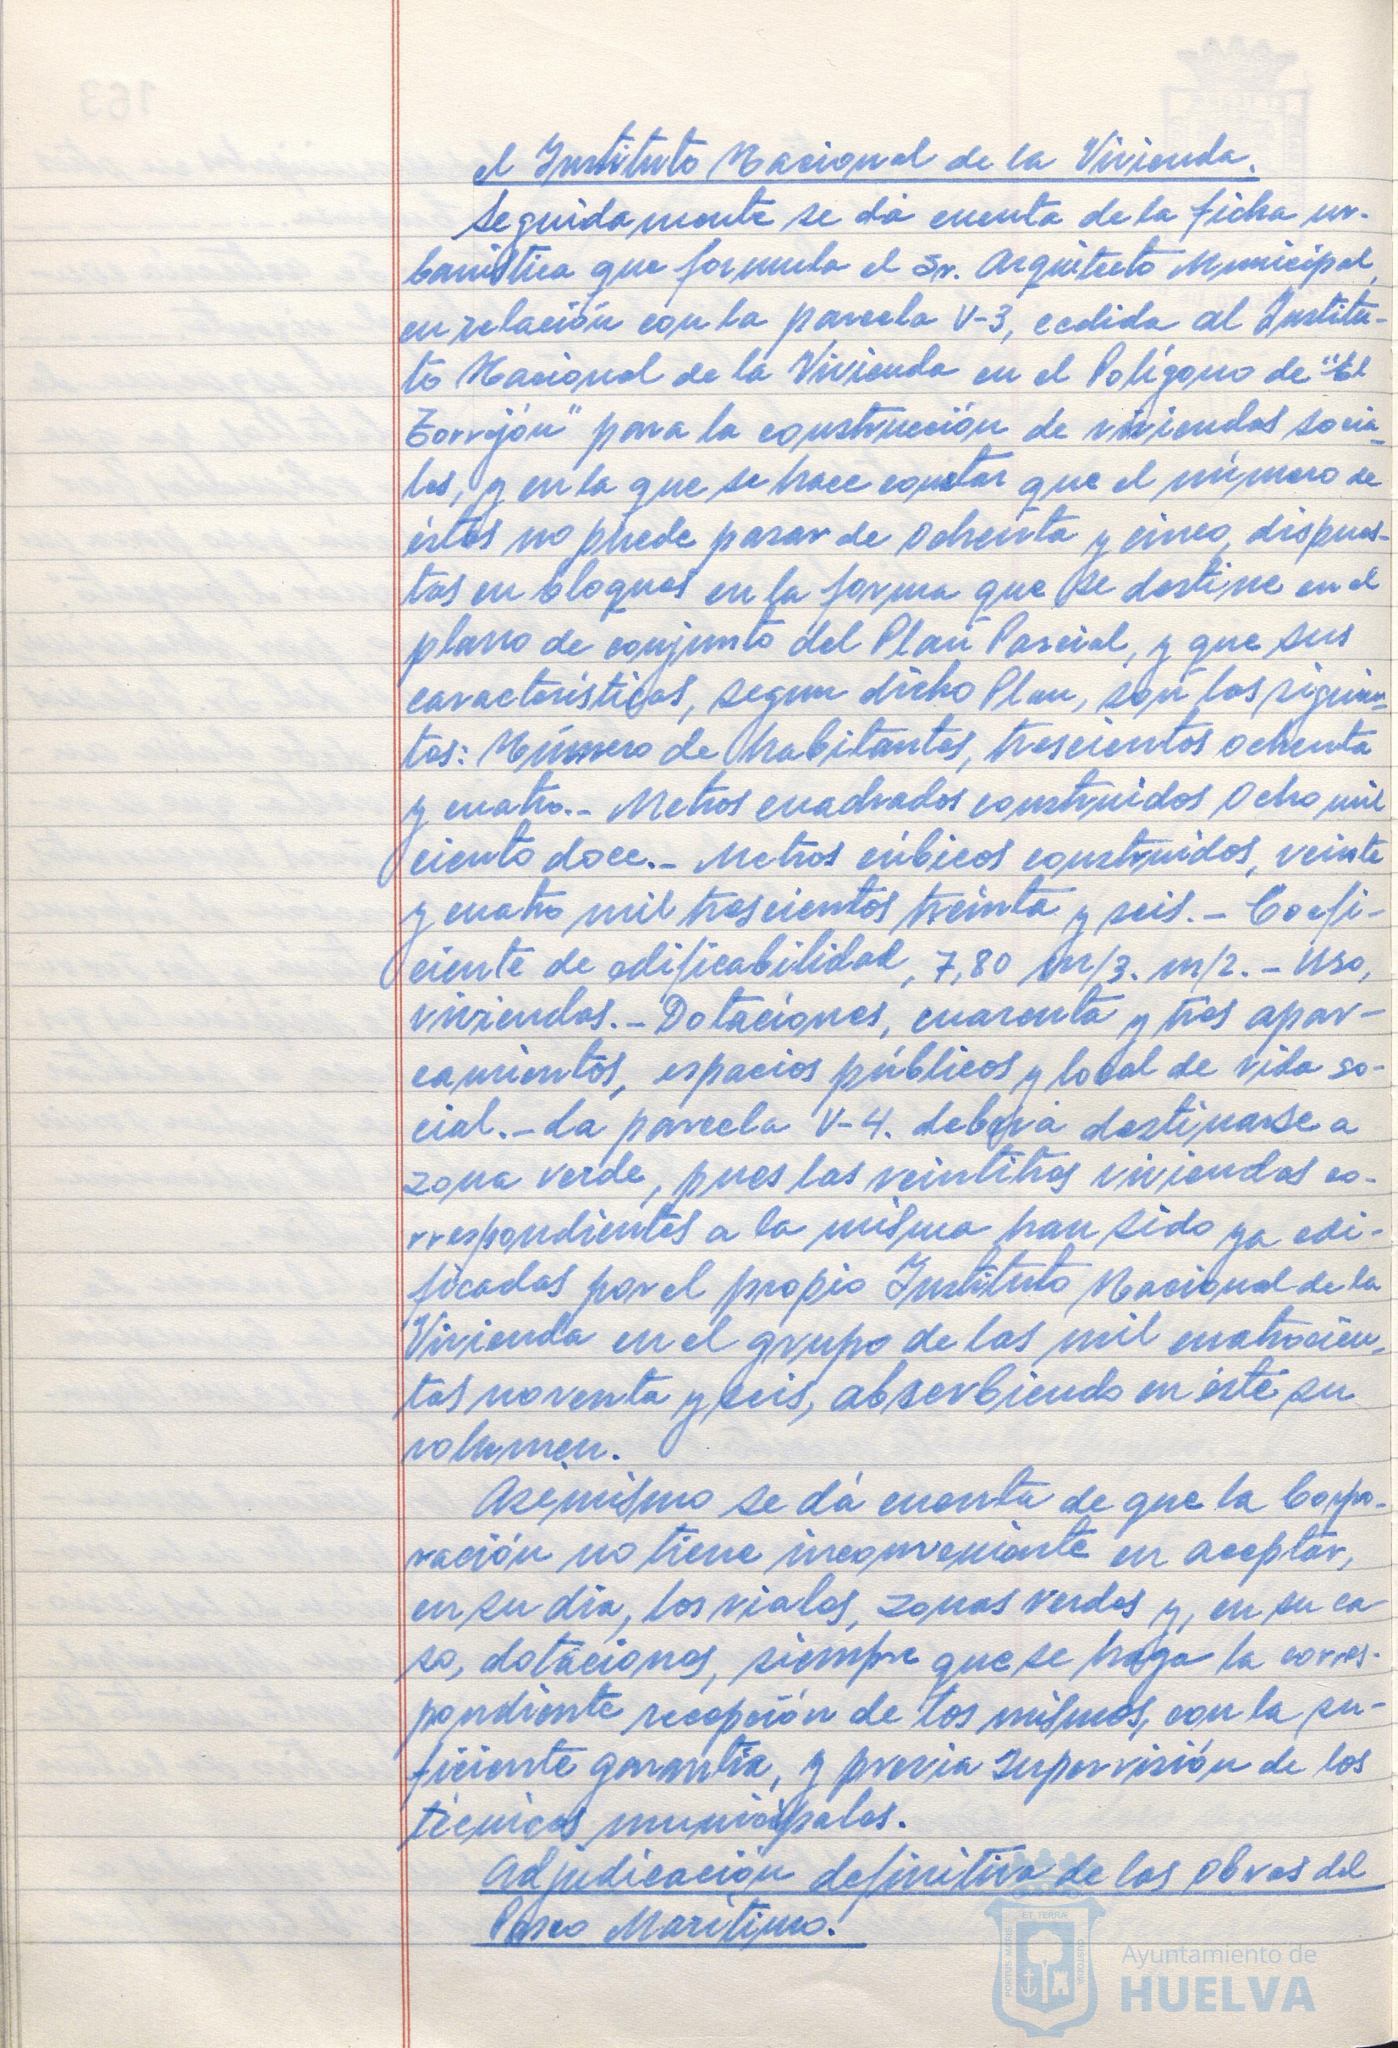 el Instituto Nacional de la Vivienda.
Seguidamente se dá cuenta de la ficha ur-
banística que formula el Sr. Arquitecto Municipal,
en relación con la parcela V-3, cedida al Institu-
to Nacional de la Vivienda en el Polígono de "El
Torrejón" para la construcción de viviendas socia-
les, y en la que se hace constar que el número de
éstas no puede pasar de ochenta y cinco, dispues-
tas en bloques en la forma que se destine en el
plano de conjunto del Plan Parcial, y que sus
características, segun dicho Plan, son las siguien-
tes: Número de habitantes, trescientos ochenta
y cuatro.- Metros cuadrados construidos ocho mil
ciento doce.- Metros cúbicos construidos, veinte
y cuatro mil trescientos treinta y seis.- Coefi-
ciente de edificabilidad, 7,80 m/3. m/2.- Uso,
viviendas.- Dotaciones, cuarenta y tres apar-
camientos, espacios públicos y local de vida so-
cial.- La parcela V-4. deberá destinarse a
zona verde, pues las veintitres viviendas co-
rrespondientes a la misma han sido ya edi-
ficadas por el propio Instituto Nacional de la
Vivienda en el grupo de las mil cuatrocien-
tas noventa y seis, absorbiendo en éste su
volumen.
Asimismo se dá cuenta de que la Corpo-
ración no tiene inconveniente en aceptar,
en su día, los viales, zonas verdes y, en su ca
so, dotaciones, siempre que se haga la corres-
pondiente recepción de los mismos, con la su-
ficiente garantía, y previa supervisión de los
técnicos municipales.
Adjudicación definitiva de las obras del
Paseo Marítimo.
PORTUS MARIS ET TERRAE CUSTODIA
Ayuntamiento de
HUELVA